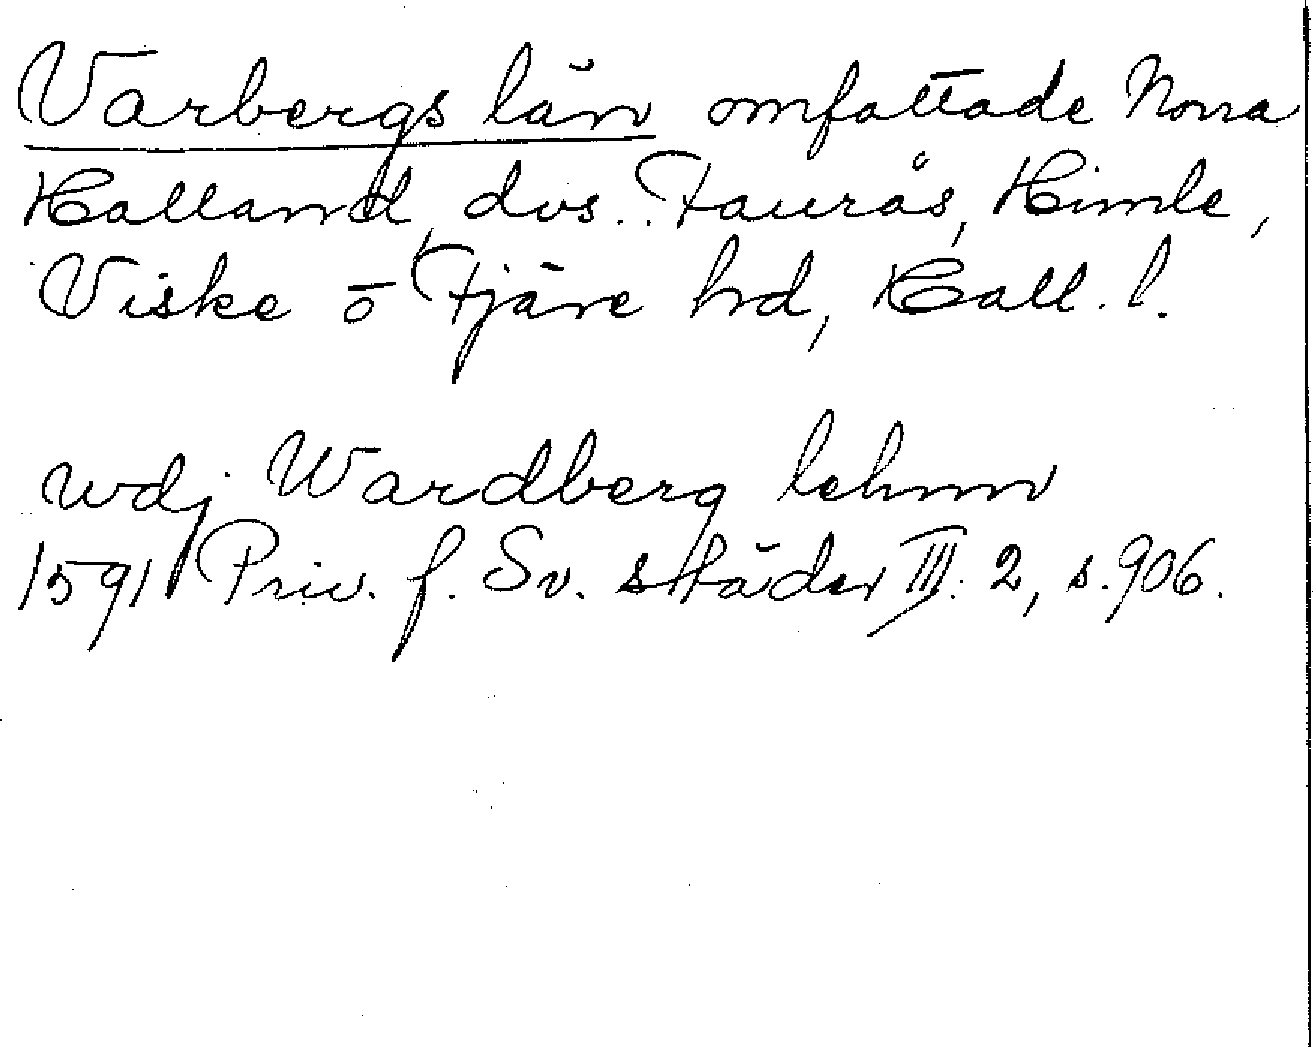 Varbergs län omfattade Norra
Halland, dvs. Faurås, Himle,
Viske o Fjäre hrd, Hall. l.
wdj Wardberg lehnn
1591 Priv. f. Sv. städer III: 2, s. 906.